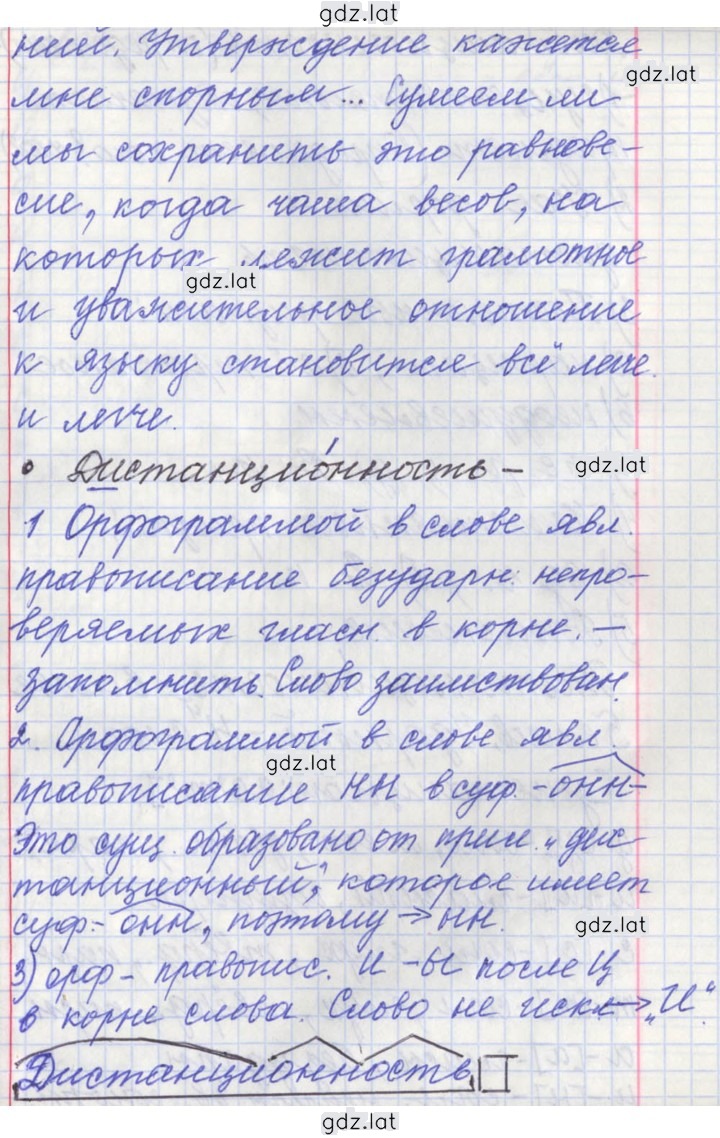 gdz.lat
ний. Утверждение кажется
gdz.lat
мне спорным... Сумеем ли
мы сохранить это равнове-
сие, когда чаша весов, на
которых лежит грамотное
gdz.lat
и уважительное отношение
к языку становится всё легче
и легче.
• Дистанцио́нность -
gdz.lat
1 Орфограммой в слове явл.
правописание безударн. непро-
веряемых гласн. в корне. -
запомнить. Слово заимствован.
2. Орфограммой в слове явл.
gdz.lat
правописание НН в суф. -онн-
Это сущ. образовано от прил. "дис
танционный", которое имеет
gdz.lat
суф. -онн, поэтому → нн.
3) орф - правопис. И -Ы после Ц
в корне слова. Слово не искл → "И".
Дистанционность
gdz.lat